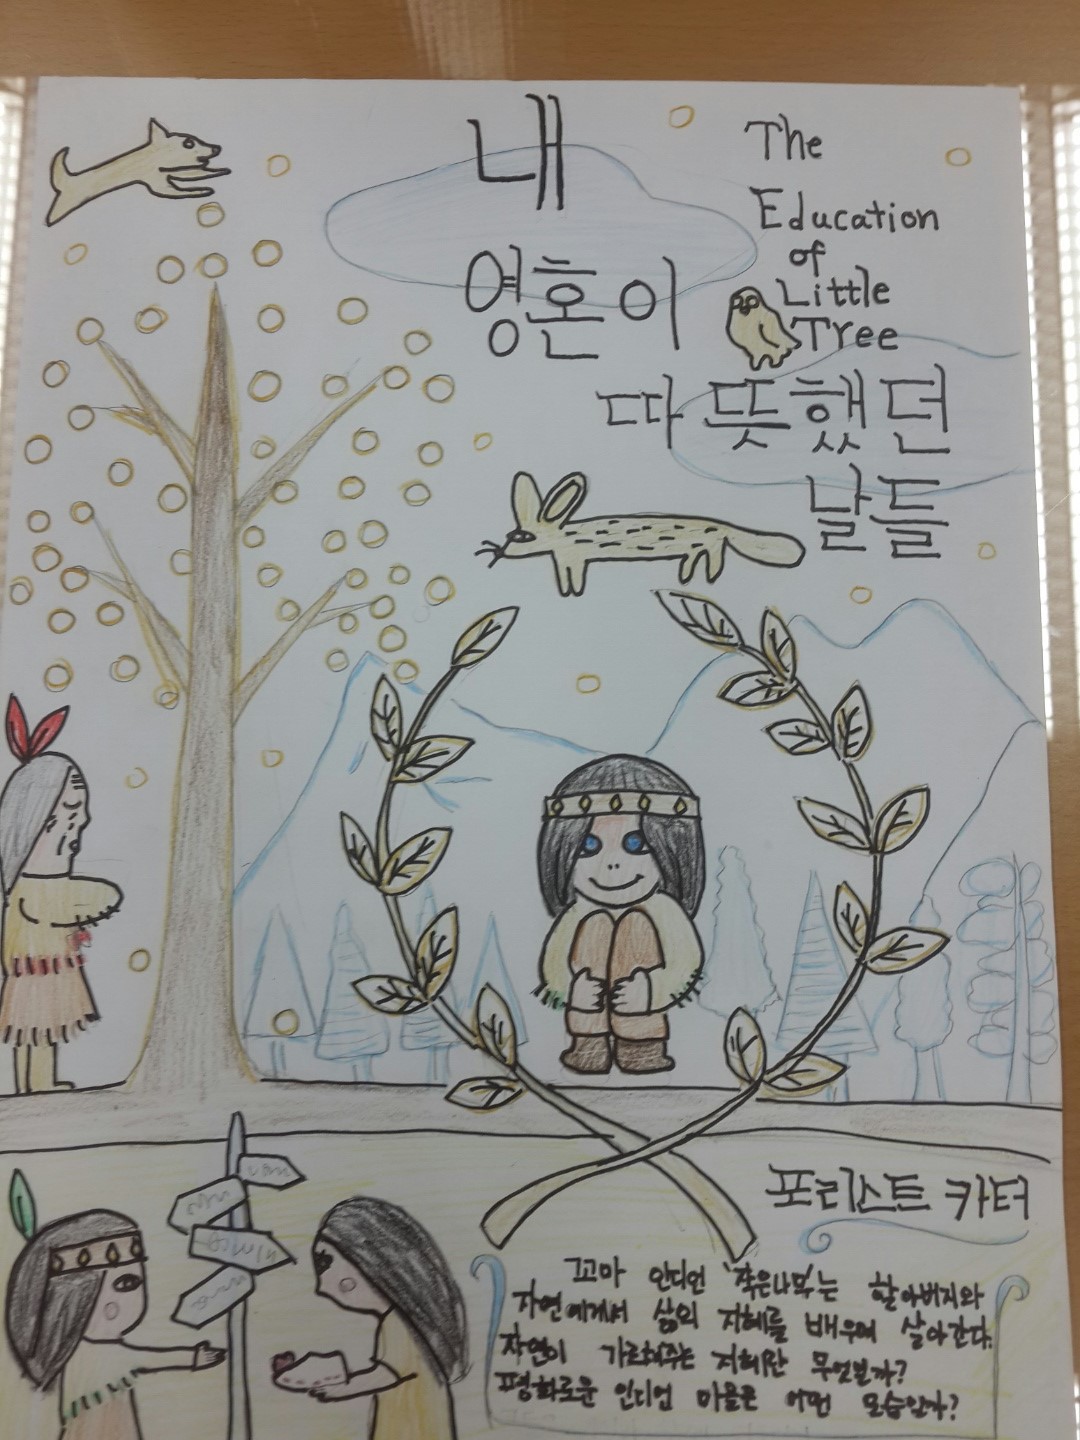 내
영혼이
따뜻했던
날들
The
Education
of
Little
Tree
포리스트 카터
꼬마 인디언 '작은나무'는 할아버지와
자연에게서 삶의 지혜를 배우며 살아간다.
자연이 가르쳐주는 지혜란 무엇일까?
평화로운 인디언 마을은 어떤 모습일까?